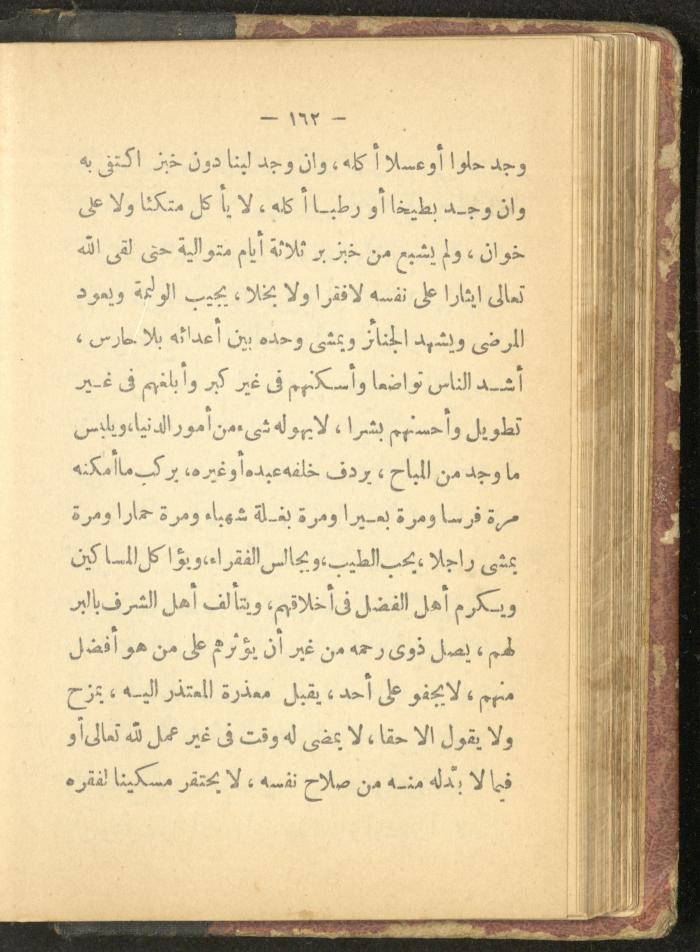 — ١٦٢ —
وجد حلوا أوعسلا أكله ، وان وجد لبنا دون خبز اكتفى به
وان وجد بطيخا أو رطبا أكله ، لا يأكل متكئا ولا على
خوان ، ولم يشبع من خبز بر ثلاثة أيام متوالية حتى لقى الله
تعالى ايثارا على نفسه لافقرا ولا بخلا ، يجيب الوليمة ويعود
المرضى ويشهد الجنائز ويمشى وحده بين أعدائه بلا حارس ،
أشد الناس تواضعا وأسكنهم فى غير كبر وأبلغهم فى غير
تطويل وأحسنهم بشرا ، لايهوله شىء من أمور الدنيا ، ويلبس
ما وجد من المباح ، يردف خلفه عبده أوغيره ، يركب ماأمكنه
مرة فرسا ومرة بعيرا ومرة بغلة شهباء ومرة حمارا ومرة
يمشى راجلا ، يحب الطيب ، ويجالس الفقراء ، ويؤاكل المساكين
ويكرم أهل الفضل فى أخلاقهم ، ويتألف أهل الشرف بالبر
لهم ، يصل ذوى رحمه من غير أن يؤثرهم على من هو أفضل
منهم ، لايجفو على أحد ، يقبل معذرة المعتذر اليه ، يمزح
ولا يقول الا حقا ، لا يمضى له وقت فى غير عمل لله تعالى أو
فيما لا بدّله منه من صلاح نفسه ، لا يحتقر مسكينا لفقره